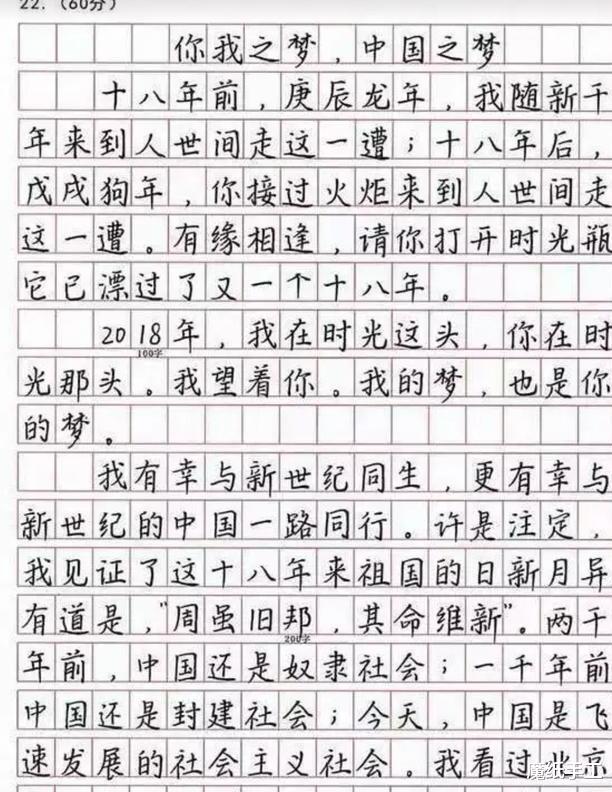 22.（60分）
你我之梦，中国之梦
十八年前，庚辰龙年，我随新千
年来到人世间走这一遭；十八年后，
戊戌狗年，你接过火炬来到人世间走
这一遭。有缘相逢，请你打开时光瓶
它已漂过了又一个十八年。
2018年，我在时光这头，你在时
100字
光那头。我望着你。我的梦，也是你
的梦。
我有幸与新世纪同生，更有幸与
新世纪的中国一路同行。许是注定，
我见证了这十八年来祖国的日新月异
有道是，“周虽旧邦，其命维新”。两千
200字
年前，中国还是奴隶社会；一千年前
中国还是封建社会；今天，中国是飞
速发展的社会主义社会。我看过北京
魔纸手工